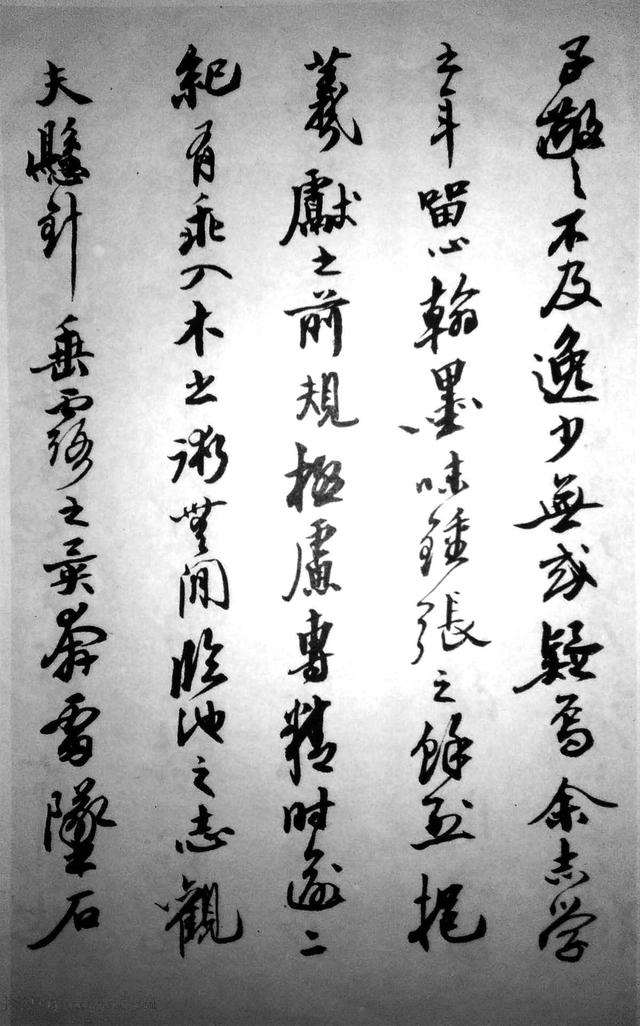 子敬之不及逸少無或疑焉余志学
之年留心翰墨味鍾張之餘烈挹
羲獻之前規極慮專精时逾二
紀有乖入木之術無間臨池之志觀
夫懸針垂露之異奔雷墜石